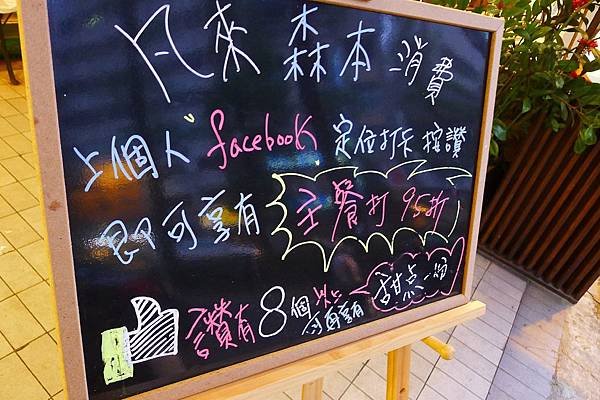 凡來 森本 消費
上個人 facebook 定位打卡 按讚
即可享有 主餐打 95折
讚有 8 個以上 可再享有 甜点一個